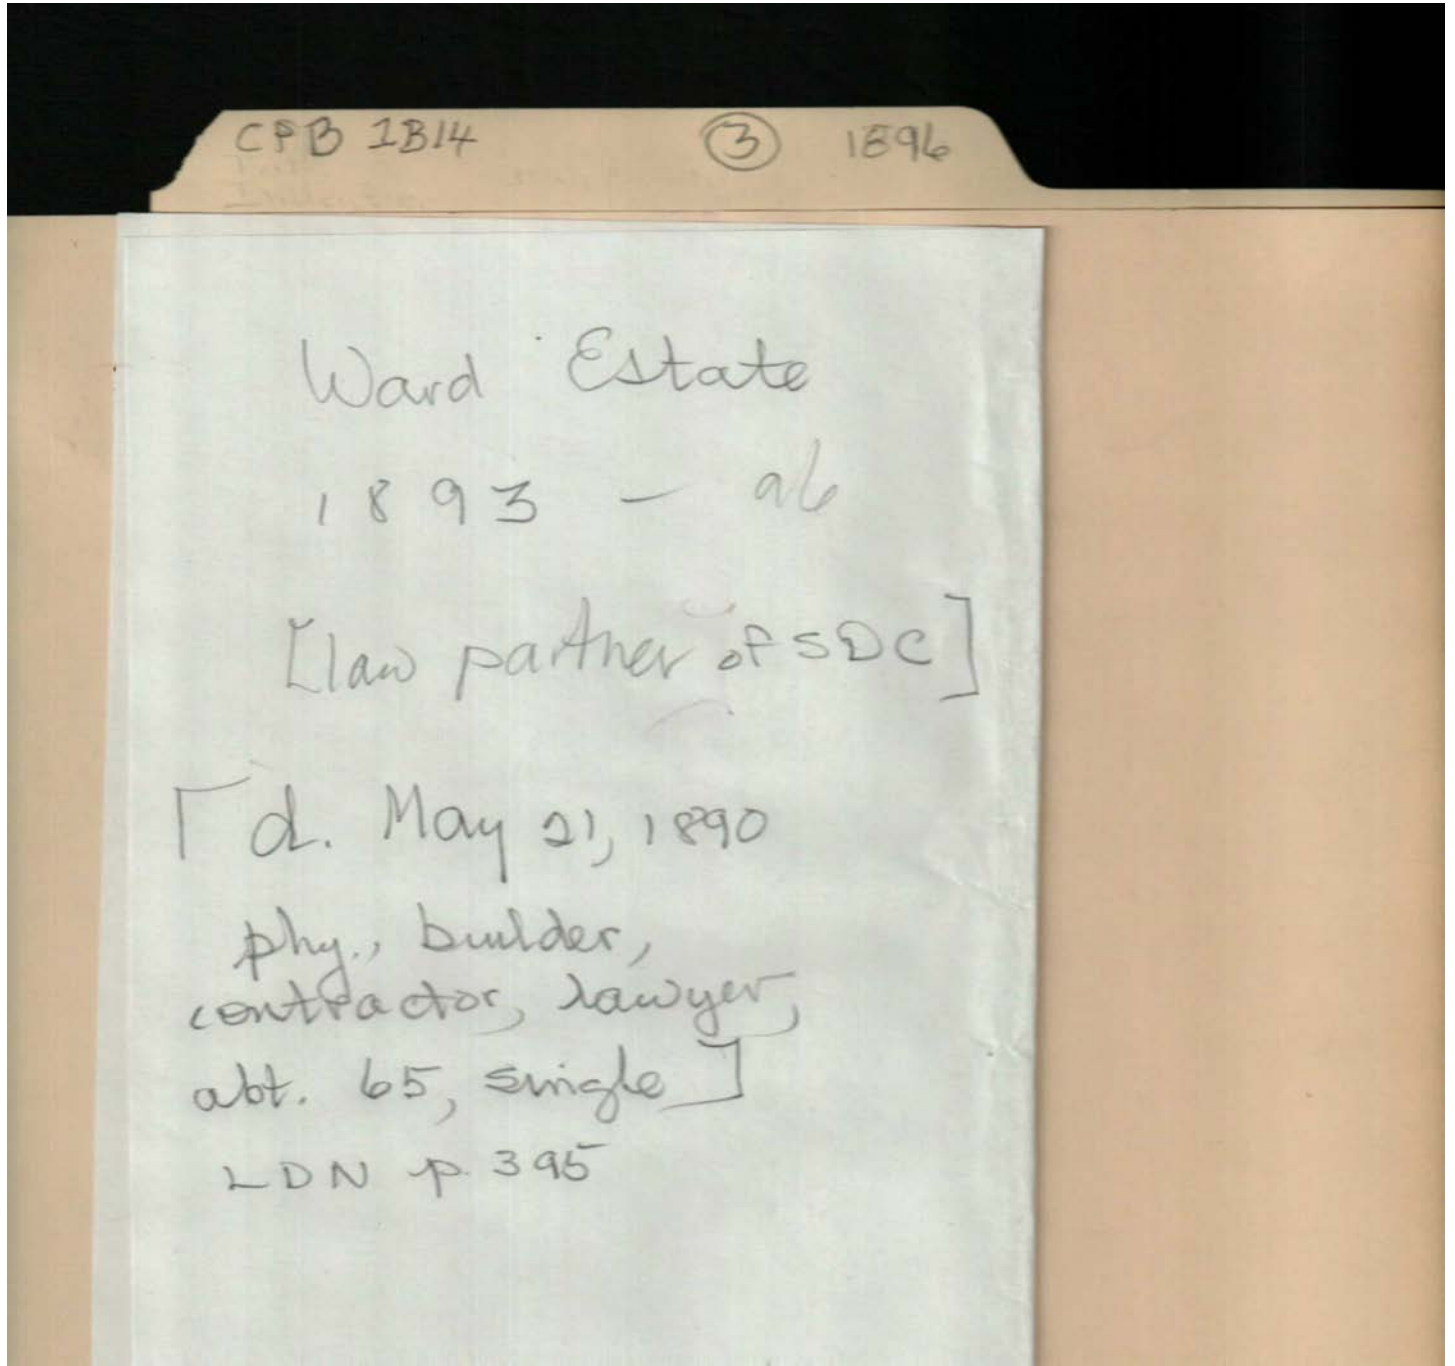 CPB IB14 ③ 1896
Ward Estate
1893 - 96
[law partner of SDC]
[d. May 21, 1890
phy., builder,
contractor, lawyer,
abt. 65, single]
LDN p. 395